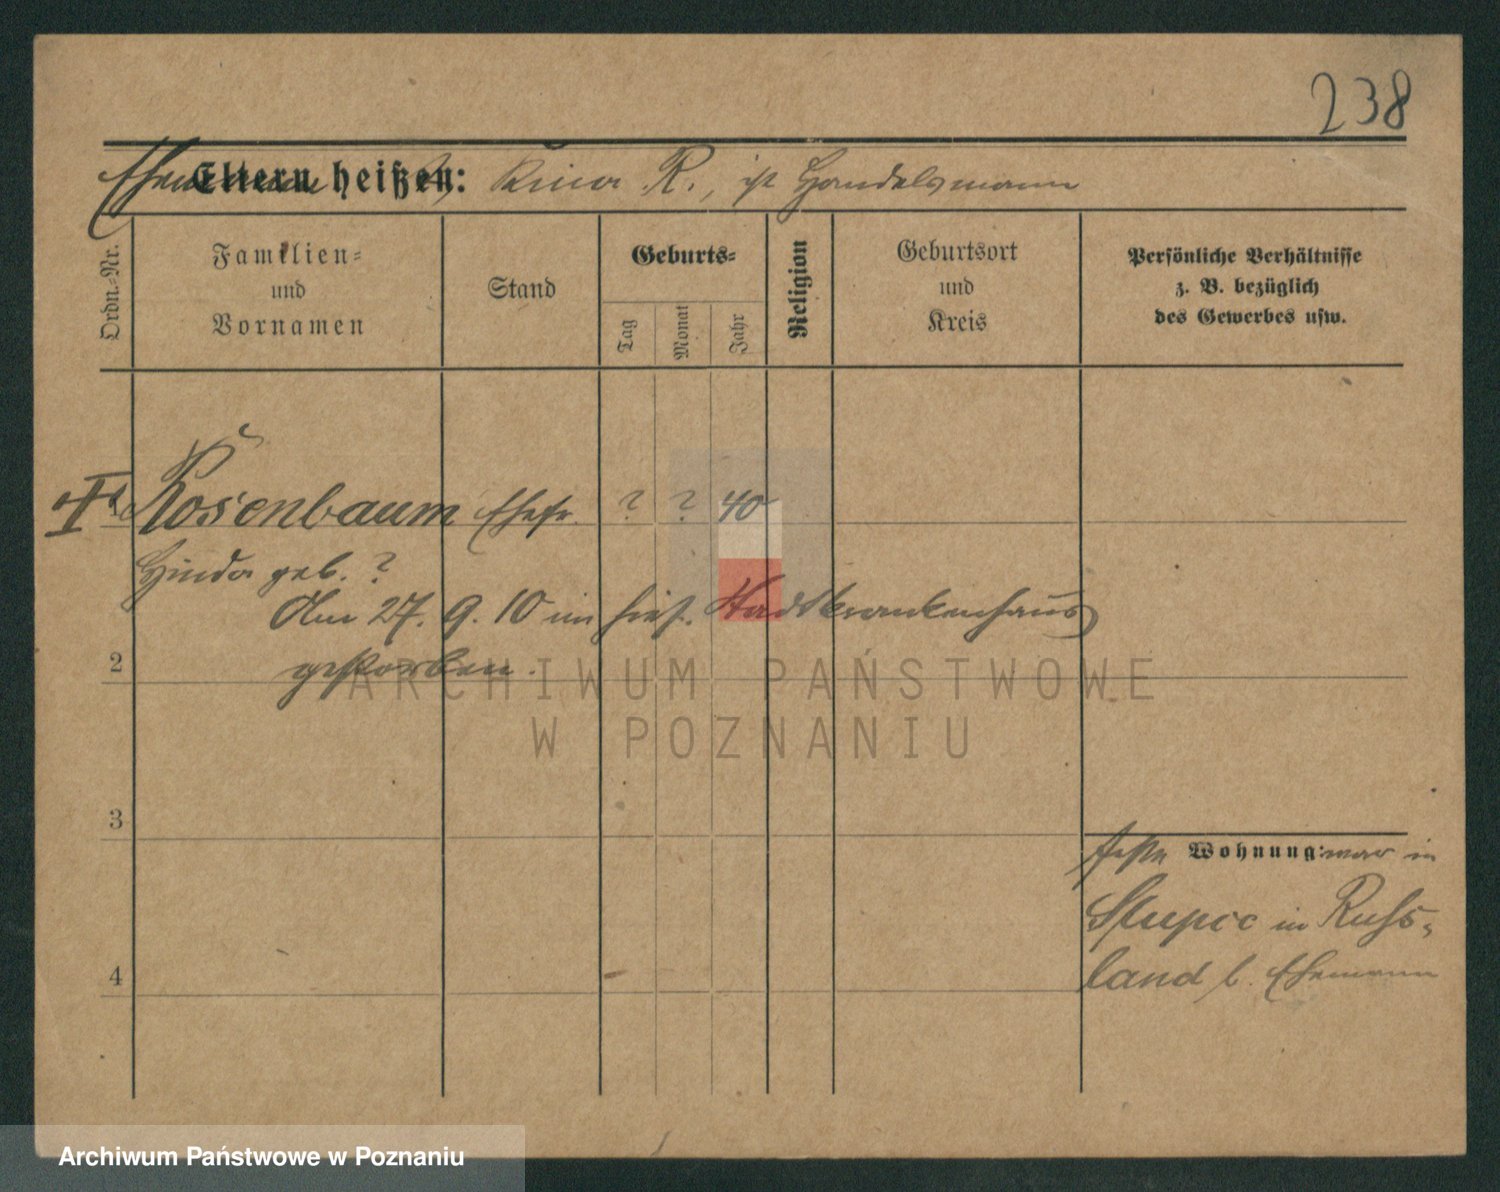 238
Ehemann Eltern heißen: R., ist Handelsmann
Ordn.-Nr.
Familien-
und
Vornamen
Stand
Geburts-
Tag
Monat
Jahr
Religion
Geburtsort
und
Kreis
Persönliche Verhältnisse
z. B. bezüglich
des Gewerbes usw.
1 Rosenbaum Ehefr. ? ? 40
Hinda geb. ?
Am 27. 9. 10 im hies. Stadtkrankenhaus
2 gestorben.
ARCHIWUM PAŃSTWOWE
W POZNANIU
3
feste Wohnung: war in
Slupce in Russ-
land b. Ehemann
4
Archiwum Państwowe w Poznaniu